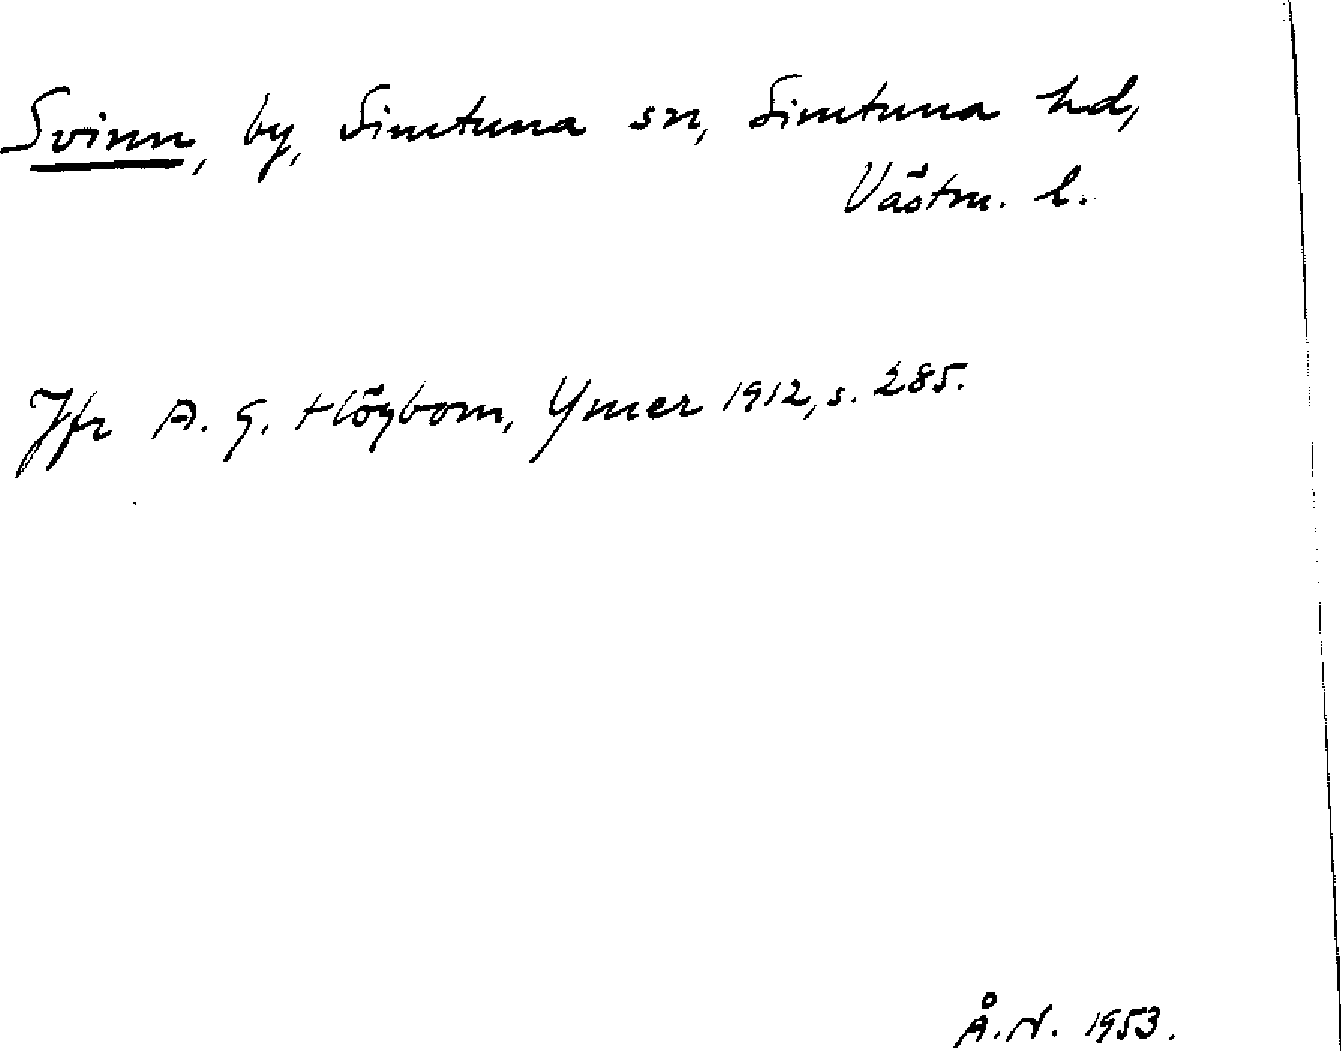 Svinn, by, Simtuna sn, Simtuna hd,
Västm. l.
Jfr A. G. Högbom, Ymer 1912, s. 285.
Å. N. 1953.